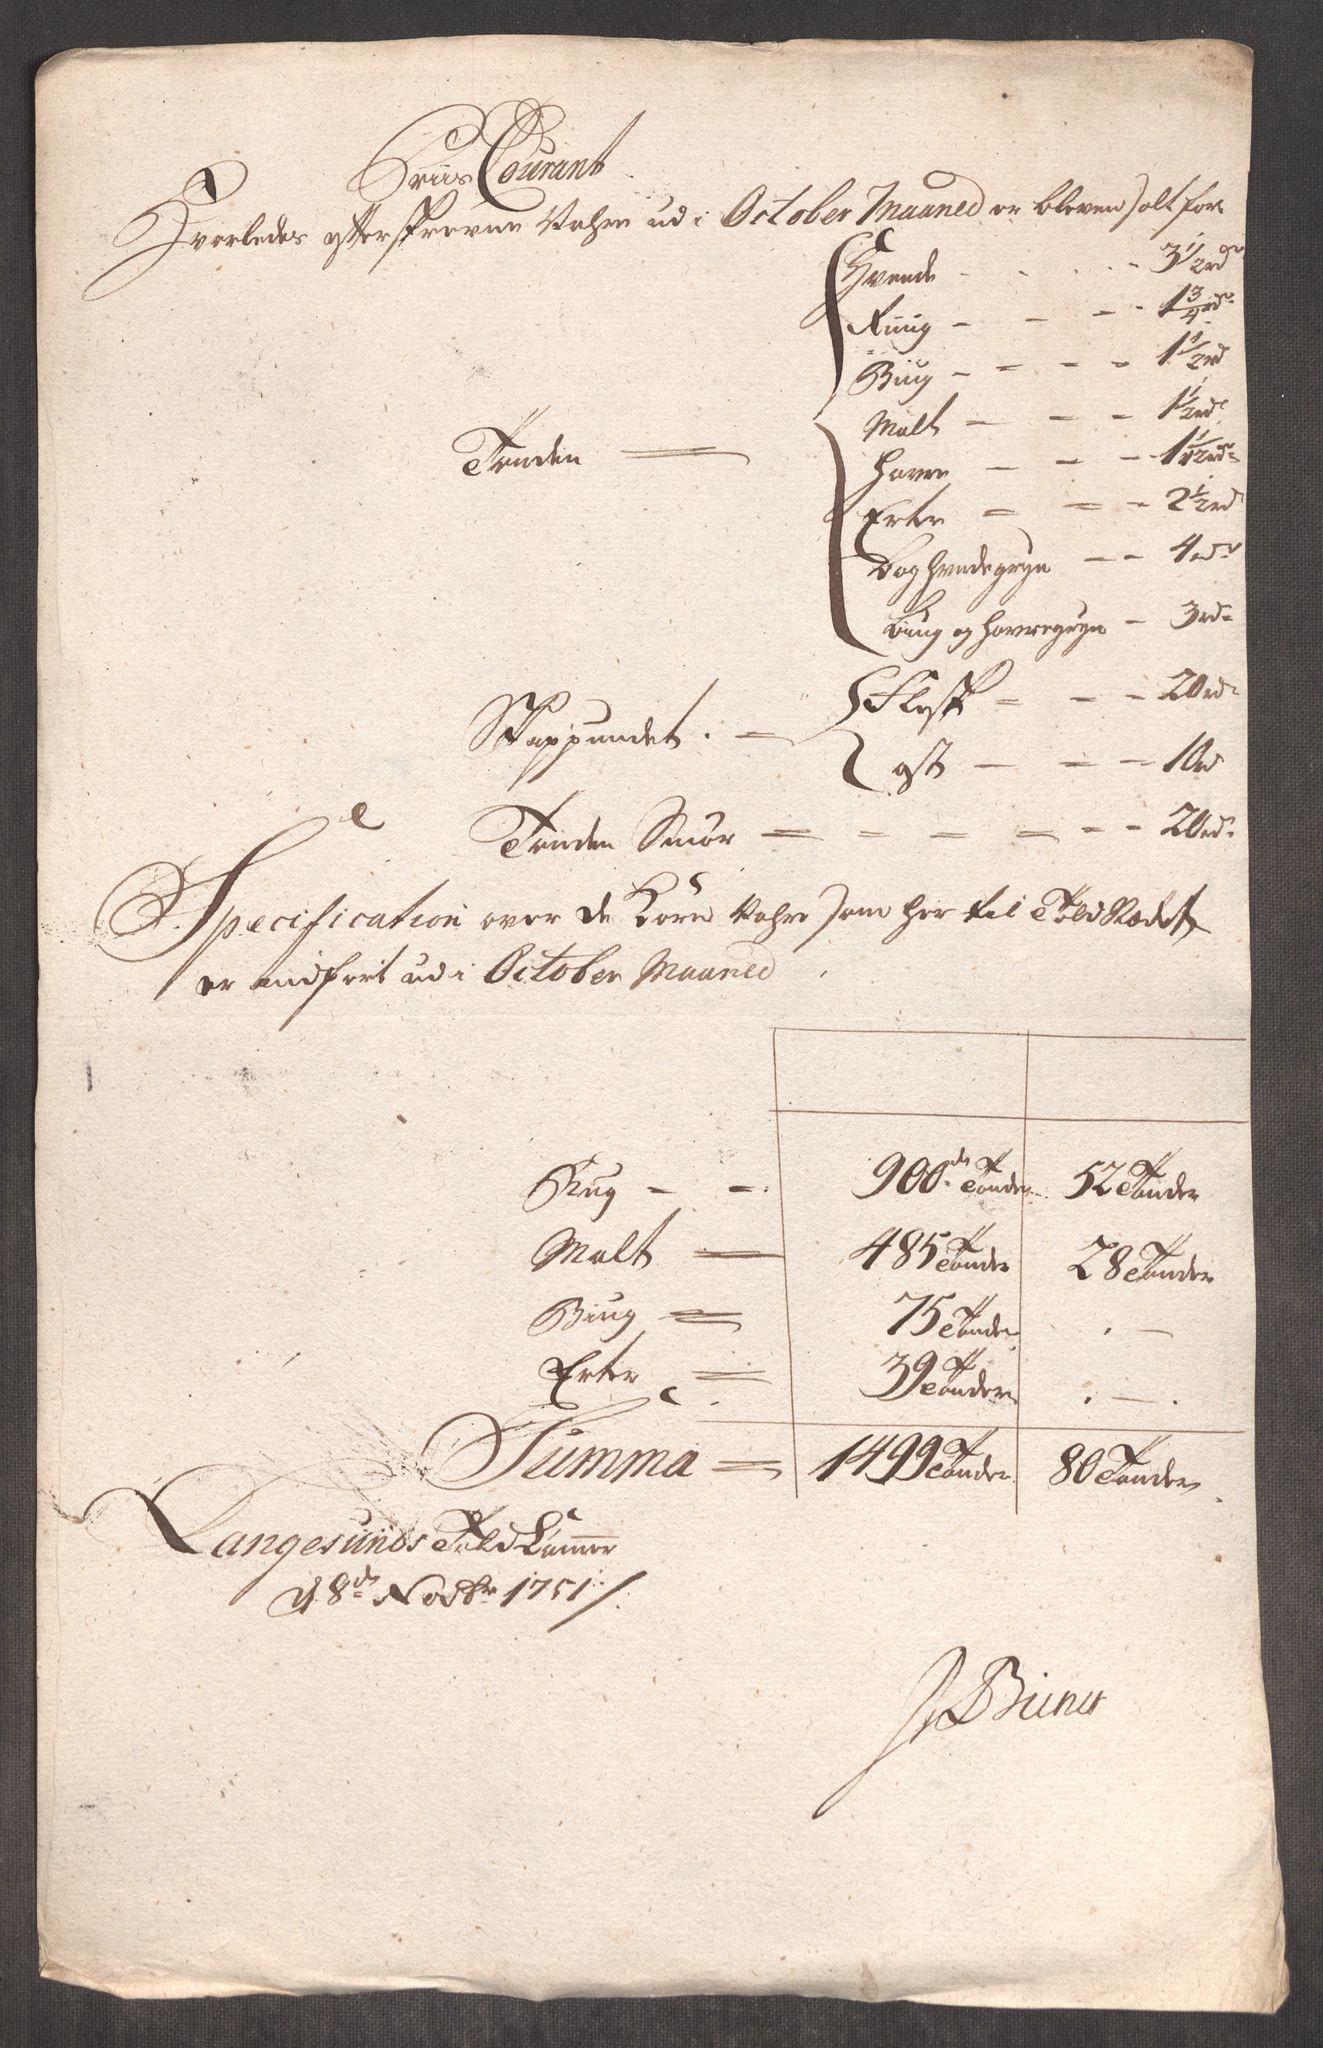 Priis Courant
Hvorledes efterskrevne Vahre ud i October Maaned er bleven solt for
Hvede - - - - 3 1/2 rdr
Ruug - - - - 1 3/4 rdr
Biug - - - - 1 1/2 rd
Malt - - - 1 1/2 rdr
Tønden = Havre - - - rdr
Erter = = = - 2 1/2 rd
boghvedegryn - - 4 rdr
biug og havregryn - 3 rdr
Skippundet. = Flesk - - - 20 rdr
ost - - - 10 rd
Tønden Smør = - - = - - 20 rdr
Specification over de Korn Vahre som her til Told Stædet
er indført ud i October Maaned
Rug - - 900de Tønder 52 Tønder
Malt = 485 Tønder 28 Tønder
Biug = 75 Tønder . -
Erter = 39 Tønder . - .
Summa = 1499 Tønder 80 Tønder
Langesunds Told Kammer
d 8de Novbr 1751 /.